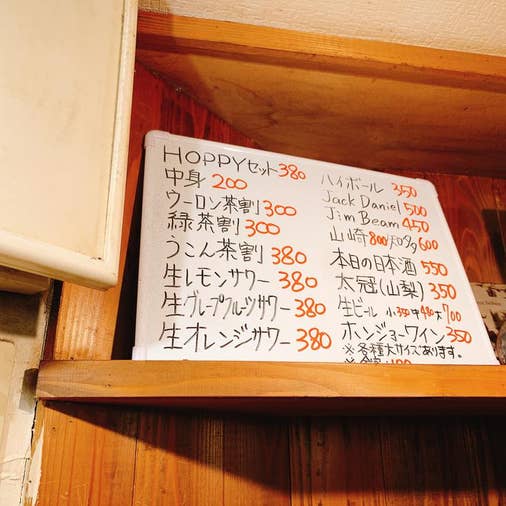 HOPPYセット 380
中身 200
ウーロン茶割 300
緑茶割 300
うこん茶割 380
生レモンサワー 380
生グレープフルーツサワー 380
生オレンジサワー 380
ハイボール 350
Jack Daniel 500
Jim Beam 450
山崎 800 知多 600
本日の日本酒 550
太冠(山梨) 350
生ビール 小350 中480 大700
ホンジョーワイン 350
※各種大サイズあります。